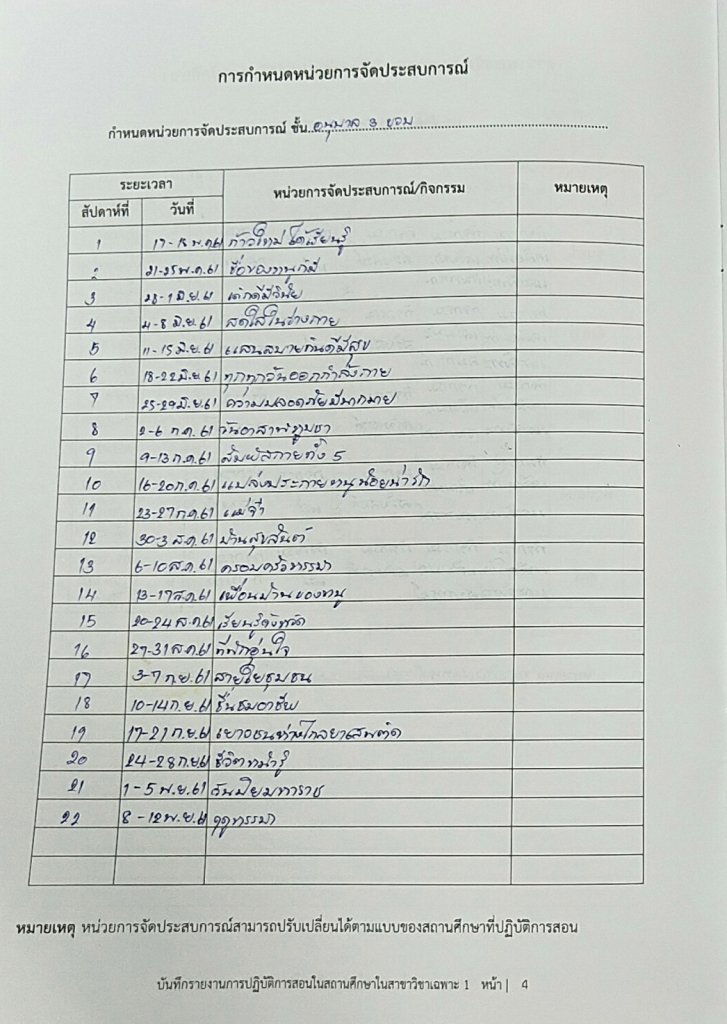 การกำหนดหน่วยการจัดประสบการณ์
กำหนดหน่วยการจัดประสบการณ์ ชั้น อนุบาล 3 ขวบ
ระยะเวลา หน่วยการจัดประสบการณ์/กิจกรรม หมายเหตุ
สัปดาห์ที่ วันที่
1 17-18 พ.ค 61 ก้าวใหม่ได้เรียนรู้
2 21-25 พ.ค.61 ชื่อของหนูก็มี
3 28-1 มิ.ย.61 เด็กดีมีวินัย
4 4-8 มิ.ย.61 สดใสในร่างกาย
5 11-15 มิ.ย.61 แสนสบายกินดีมีสุข
6 18-22 มิ.ย.61 ทุกทุกวันออกกำลังกาย
7 25-29 มิ.ย.61 ความปลอดภัยมีมากมาย
8 2-6 ก.ค.61 วันอาสาฬหบูชา
9 9-13 ก.ค.61 สัมผัสกายทั้ง 5
10 16-20 ก.ค.61 แปลงประกายหนูน้อยน่ารัก
11 23-27 ก.ค.61 แม่จ๋า
12 30-3 ส.ค.61 บ้านสุขสันต์
13 6-10 ส.ค.61 ครอบครัวหรรษา
14 13-17 ส.ค.61 เพื่อนบ้านของหนู
15 20-24 ส.ค 61 เรียนรู้จังหวัด
16 27-31 ส.ค.61 ที่พักอุ่นใจ
17 3-7 ก.ย.61 สายใยชุมชน
18 10-14 ก.ย.61 ชื่นชมอาชีพ
19 17-21 ก.ย.61 เยาวชนห่างไกลยาเสพติด
20 24-28 ก.ย.61 ชีวิตน่ารู้
21 1-5 พ.ย.61 วันปิยมหาราช
22 8-12 พ.ย.61 ฤดูหรรษา
หมายเหตุ หน่วยการจัดประสบการณ์สามารถปรับเปลี่ยนได้ตามแบบของสถานศึกษาที่ปฏิบัติการสอน
บันทึกรายงานการปฏิบัติการสอนในสถานศึกษาในสาขาวิชาเฉพาะ 1 หน้า | 4